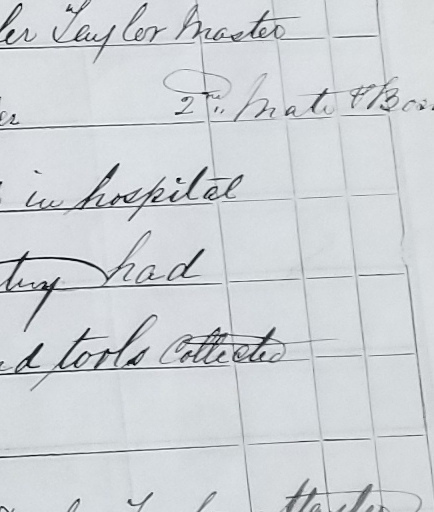 ler Taylor Master
er 2nd Mate & Bos
in hospital
try had
d tools Collected